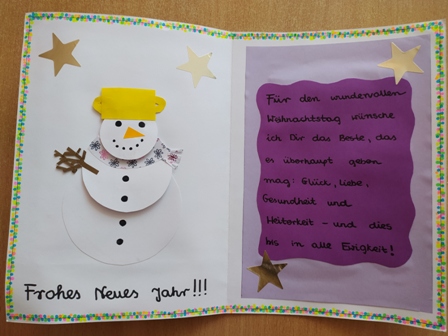 Frohes Neues Jahr!!!
Für den wundervollen
Weihnachtstag wünsche
ich Dir das Beste, das
es überhaupt geben
mag: Glück, Liebe,
Gesundheit und
Heiterkeit - und dies
bis in alle Ewigkeit!